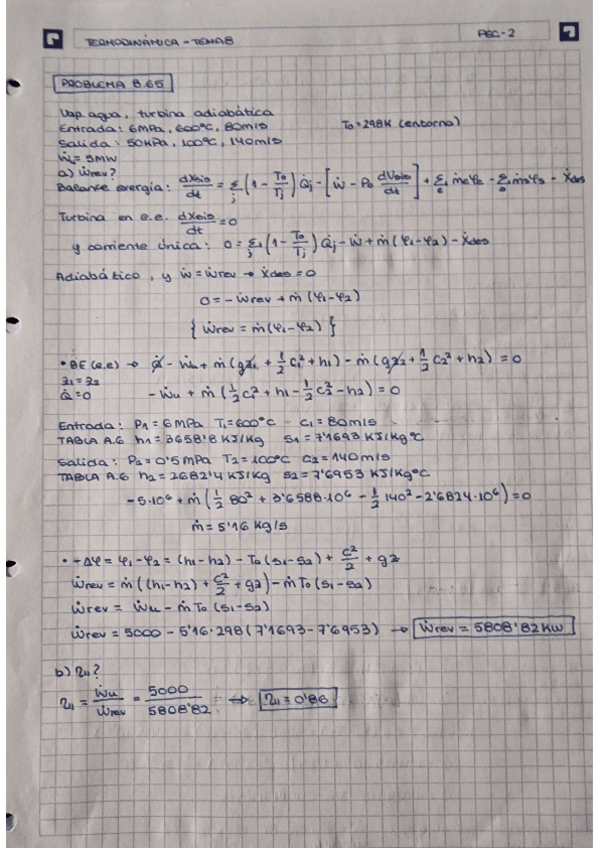 TERMODINÁMICA - TEMA 8
PEC-2
PROBLEMA 8.65
Vap. agua, turbina adiabática
Entrada: 6MPa, 600ºC, 80m/s
T₀ = 298K (entorno)
Salida: 50KPa, 100ºC, 140m/s
Ẇu = 5MW
a) Ẇrev?
Balance exergía: dXsis/dt = Σj (1 - T₀/Tj) Q̇j - [Ẇ - P₀ dVsis/dt] + Σe ṁeφe - Σs ṁsφs - Ẋdes
Turbina en e.e. dXsis/dt = 0
y corriente única: 0 = Σj (1 - T₀/Tj) Q̇j - Ẇ + ṁ (φ1 - φ2) - Ẋdes
Adiabático, y Ẇ = Ẇrev → Ẋdes = 0
0 = - Ẇrev + ṁ (φ1 - φ2)
{ Ẇrev = ṁ (φ1 - φ2) }
• BE (e.e) → Q̇ - Ẇu + ṁ (gz1 + 1/2 c1² + h1) - ṁ (gz2 + 1/2 c2² + h2) = 0
z1 = z2
Q̇ = 0
- Ẇu + ṁ (1/2 c1² + h1 - 1/2 c2² - h2) = 0
Entrada: P1 = 6MPa T1 = 600ºC c1 = 80m/s
TABLA A.6 h1 = 3658'8 KJ/Kg s1 = 7'1693 KJ/Kg ºC
Salida: P2 = 0'5MPa T2 = 100ºC c2 = 140m/s
TABLA A.6 h2 = 2682'4 KJ/Kg s2 = 7'6953 KJ/Kg ºC
-5·10⁶ + ṁ (1/2 80² + 3'6588·10⁶ - 1/2 140² - 2'6824·10⁶) = 0
ṁ = 5'16 Kg/s
• -Δφ = φ1 - φ2 = (h1 - h2) - T₀ (s1 - s2) + c²/2 + gz
Ẇrev = ṁ ((h1 - h2) + c²/2 + gz) - ṁ T₀ (s1 - s2)
Ẇrev = Ẇu - ṁ T₀ (s1 - s2)
Ẇrev = 5000 - 5'16·298 (7'1693 - 7'6953) → Ẇrev = 5808'82 KW
b) ηII?
ηII = Ẇu/Ẇrev = 5000/5808'82 ⇒ ηII = 0'86